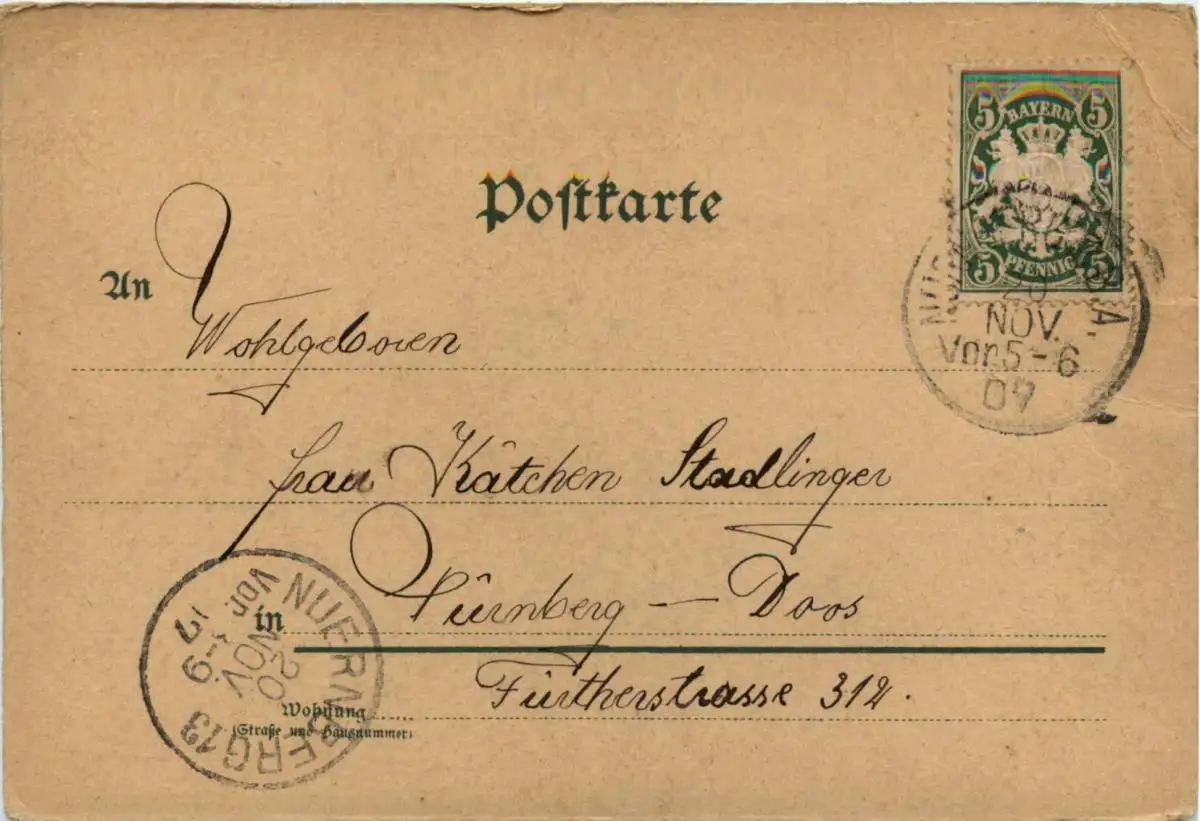 5 BAYERN 5
5 PFENNIG 5
Postkarte
20
NOV.
Vor.5-6
An
Wohlgeboren
Frau Kätchen Stadlinger
in Nürnberg — Doos
Fürtherstrasse 312.
Wohnung
(Straße und Hausnummer)
NUERNBERG 13
20
NOV
Vor.